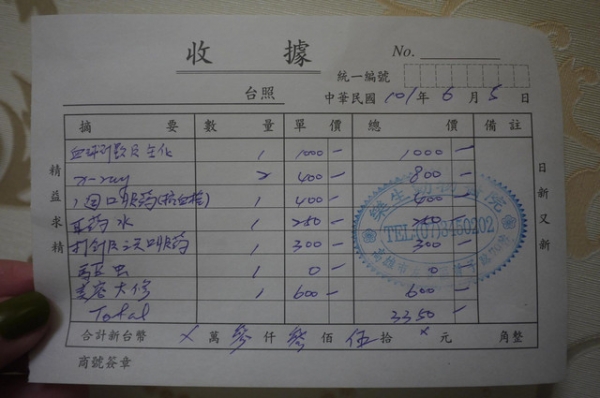 收 據
No.
統一編號
台照
中華民國 101年 6 月 5 日
摘 要 數 量 單 價 總 價 備 註
血球計數及生化 1 1000 — 1000 —
x-ray 2 400 — 800 —
1 400 — 400 —
耳药水 1 250 — 250 —
打針及三天口服药 1 300 — 300 —
驅虫 1 0 — 0 —
美容大修 1 600 — 600 —
Total 3350 —
合計新台幣 × 萬 參 仟 參 佰 伍 拾 × 元 角整
商號簽章
精益求精
日新又新
樂生動物醫院
TEL(07)3460202